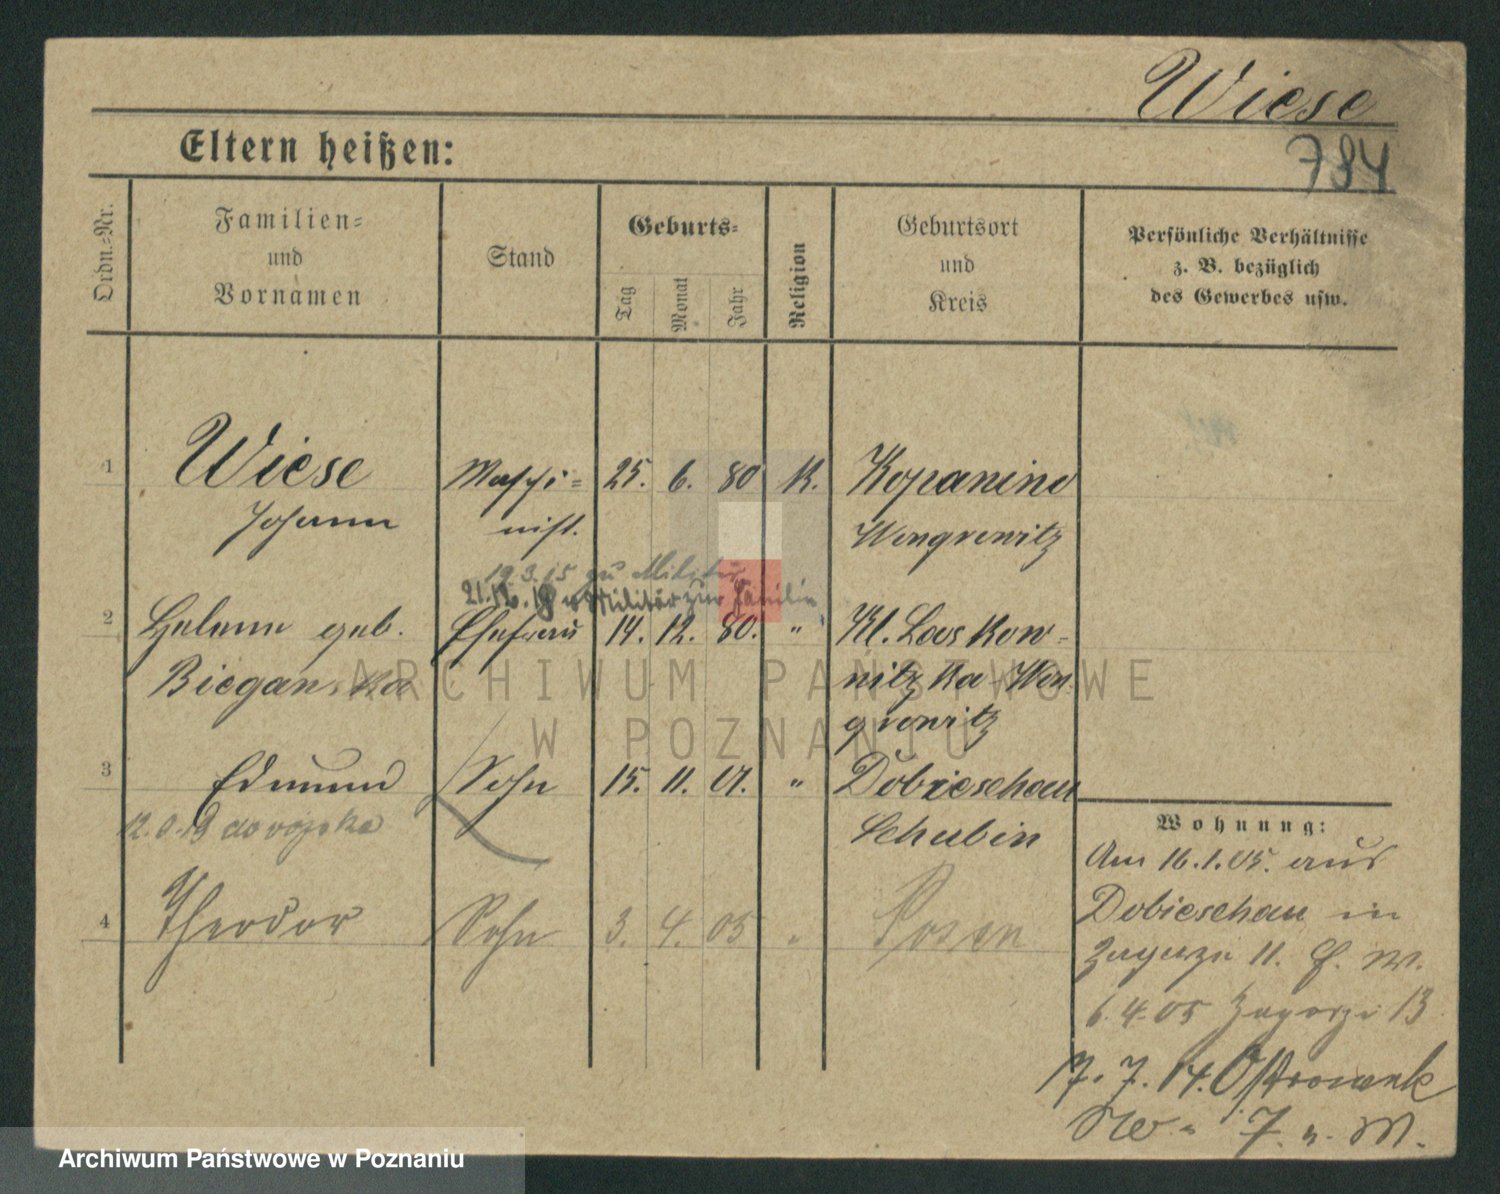 Wiese
784
Eltern heißen:
Ordn.=Nr.
Familien=
und
Vornamen
Stand
Geburts=
Tag
Monat
Jahr
Religion
Geburtsort
und
Kreis
Persönliche Verhältnisse
z. B. bezüglich
des Gewerbes usw.
1 Wiese Maschi= 25. 6. 80 K. Kopanino
Johann nist. Wongrowitz
19.3.15 zu Militär
Militär zur Familie
2 Helene geb. Ehefrau 14. 12. 80. " Kl. Laskow-
Bieganska nitzka Won
growitz
3 Edmund Sohn 15. 11. 01. " Dobieschau
do vojska Schubin
4 Theodor Sohn 3. 4. 05 " Posen
Wohnung:
Am 16.1.05. aus
Dobieschau in
Zagorze 11. b. W.
6.4.05 Zagorze 13
17.7.14. Ostrowek
No. 7. n. M.
ARCHIWUM PAŃSTWOWE
W POZNANIU
Archiwum Państwowe w Poznaniu